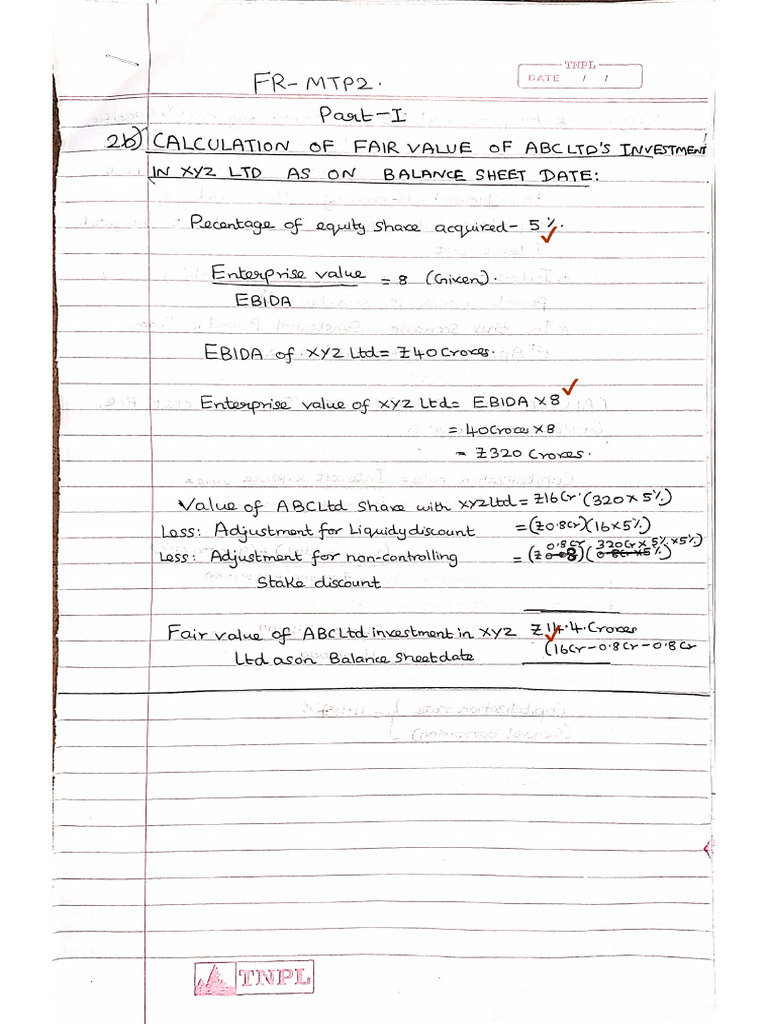 TNPL
DATE / /
FR-MTP2.
Part-I
2b) CALCULATION OF FAIR VALUE OF ABC LTD'S INVESTMENT
IN XYZ LTD AS ON BALANCE SHEET DATE:
Pecentage of equity share acquired- 5%.
Enterprise value = 8 (Given).
EBIDA
EBIDA of XYZ Ltd= ₹40Crores.
Enterprise value of XYZ Ltd= EBIDA x8
= 40Crores x8
= ₹320 Crores.
Value of ABCLtd Share with XYZLtd= ₹16Cr (320x5%)
Less: Adjustment for Liquidy discount =(₹0.8Cr)(16x5%)
0.8Cr 320Cr x 5% x5%)
Less: Adjustment for non-controlling = (₹0.08)(0.8Cr x5%)
Stake discount
Fair value of ABCLtd investment in XYZ ₹14.4.Crores
Ltd ason Balance Sheetdate (16Cr-0.8Cr-0.8Cr
TNPL